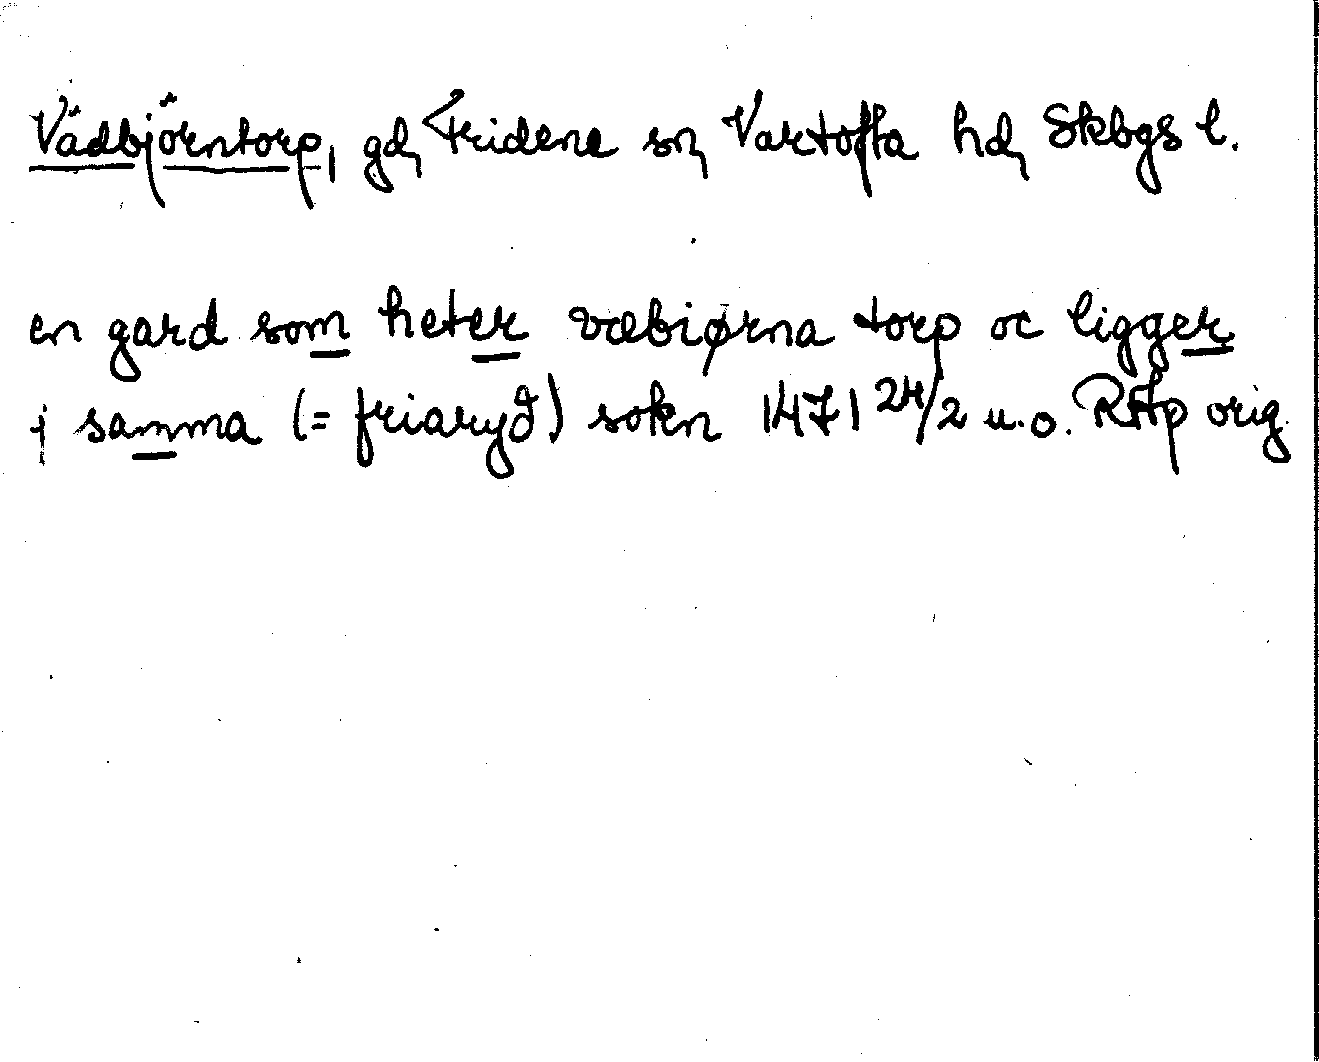 Vädbjörntorp, gd, Fridene sn, Vartofta hd, Skbgs l.
en gard som heter væbiørna torp oc ligger
j samma (= friaryd) sokn 1471 24/2 u.o. RAp orig